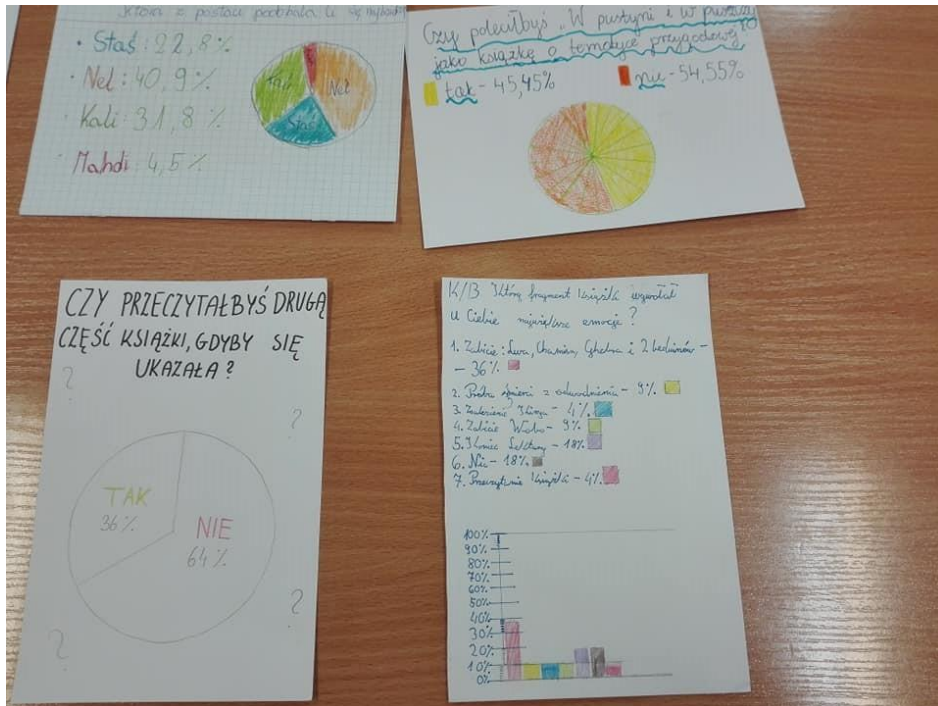 Która z postaci podobała Ci się najbardziej
• Staś: 22,8%
• Nel: 40,9%
• Kali: 31,8%
• Mahdi: 4,5%
Kali
Nel
Staś
Czy poleciłbyś „W pustyni i w puszczy"
jako książkę o tematyce przygodowej
tak - 45,45%
nie - 54,55%
CZY PRZECZYTAŁBYŚ DRUGĄ
CZĘŚĆ KSIĄŻKI, GDYBY SIĘ
UKAZAŁA?
?
?
TAK
36%
NIE
64%
?
?
K/B Który fragment książki wywołał
u Ciebie największe emocje?
1. Zabicie: Lwa, Chamisa, Gebhra i 2 beduinów -
- 36%
2. - 9%
3. Znalezienie - 4%
4. Zabicie Wobo - 9%
5. Koniec Lektury - 18%
6. Nic - 18%
7. Przeczytanie książki - 4%
100%
90%
80%
70%
60%
50%
40%
30%
20%
10%
0%